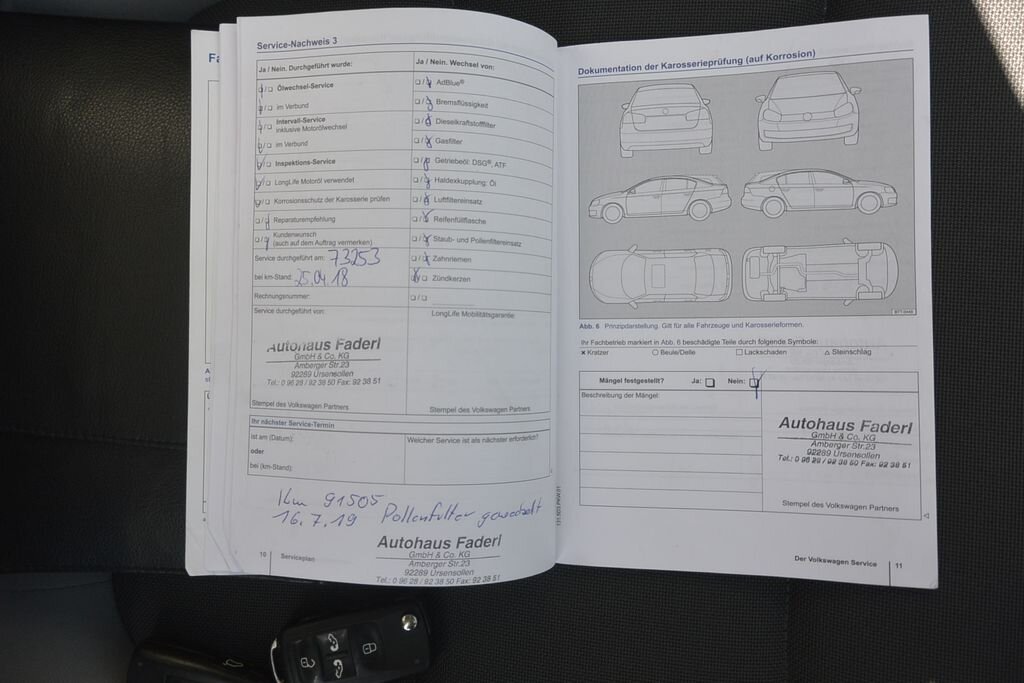 Fa
Service-Nachweis 3
Ja / Nein. Durchgeführt wurde:
Ölwechsel-Service
im Verbund
Intervall-Service
inklusive Motorölwechsel
im Verbund
Inspektions-Service
LongLife Motoröl verwendet
Korrosionsschutz der Karosserie prüfen
Reparaturempfehlung
Kundenwunsch
(auch auf dem Auftrag vermerken)
Service durchgeführt am: 73253
bei km-Stand: 25.04.18
Rechnungsnummer:
Service durchgeführt von:
Autohaus Faderl
GmbH & Co. KG
Amberger Str.23
92289 Ursensollen
Tel.: 0 96 28 / 92 38 50 Fax: 92 38 51
Stempel des Volkswagen Partners
Ja / Nein. Wechsel von:
AdBlue®
Bremsflüssigkeit
Dieselkraftstofffilter
Gasfilter
Getriebeöl: DSG®, ATF
Haldexkupplung: Öl
Luftfiltereinsatz
Reifenfüllflasche
Staub- und Pollenfiltereinsatz
Zahnriemen
Zündkerzen
LongLife Mobilitätsgarantie:
Stempel des Volkswagen Partners
Ihr nächster Service-Termin
ist am (Datum):
oder
bei (km-Stand):
Welcher Service ist als nächster erforderlich?
Km 91505
16.7.19 Pollenfilter gewechselt
Autohaus Faderl
GmbH & Co. KG
Amberger Str.23
92289 Ursensollen
Tel.: 0 96 28 / 92 38 50 Fax: 92 38 51
10 Serviceplan
Dokumentation der Karosserieprüfung (auf Korrosion)
Abb. 6 Prinzipdarstellung. Gilt für alle Fahrzeuge und Karosserieformen.
Ihr Fachbetrieb markiert in Abb. 6 beschädigte Teile durch folgende Symbole:
× Kratzer ○ Beule/Delle □ Lackschaden △ Steinschlag
Mängel festgestellt? Ja: □ Nein: □
Beschreibung der Mängel:
Autohaus Faderl
GmbH & Co. KG
Amberger Str.23
92289 Ursensollen
Tel.: 0 96 28 / 92 38 50 Fax: 92 38 51
Stempel des Volkswagen Partners
Der Volkswagen Service 11